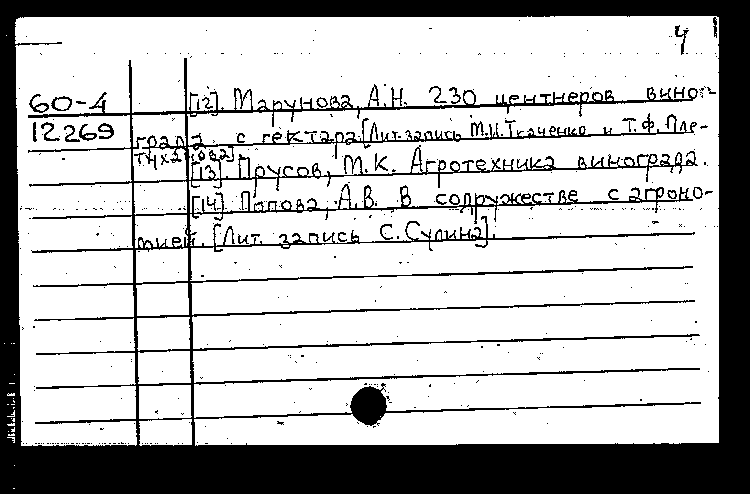 4
60-4 [12]. Марунова, А.Н. 230 центнеров вино-
12269 града с гектара [Лит. запись М.И. Ткаченко и Т.Ф. Пле-
[13]. Прусов, М.К. Агротехника винограда.
[14]. Попова, А.В. В содружестве с агроно-
мией. [Лит. запись С. Сулина].